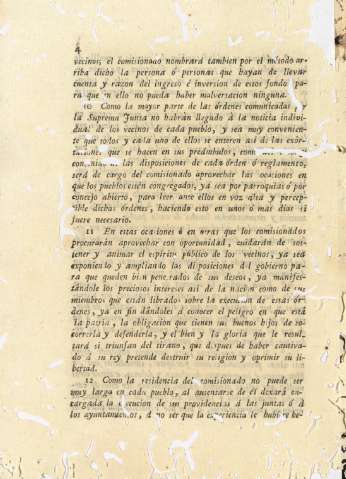 4
vecinos, el comisionado nombrará tambien por el método ar-
riba dicho la persona ó personas que hayan de llevar
cuenta y razon del ingreso é inversion de estos fondos pa-
ra que en ello no pueda haber malversacion ninguna.
10 Como la mayor parte de las órdenes comunicadas
la Suprema Junta no habrán llegado á la noticia indivi-
dual de los vecinos de cada pueblo, y sea muy convenien-
te que todos y cada uno de ellos se enteren asi de las exôr-
que se hacen en sus preámbulos, como
las disposiciones de cada órden ó reglamento,
será de cargo del comisionado aprovechar las ocasiones en
que los pueblos estén congregados, ya sea por parroquias ó por
concejo abierto, para leer ante ellos en voz alta y percep-
tible dichas órdenes, haciendo esto en uno ó mas dias si
fuere necesario.
11 En estas ocasiones ó en otras que los comisionados
procurarán aprovechar con oportunidad, cuidarán de sos-
tener y animar el espíritu público de los vecinos, ya sea
exponiendo y ampliando las disposiciones del gobierno pa-
ra que queden bien penetrados de sus deseos, ya manifes-
tándole los preciosos intereses asi de la nacion como de sus
miembros que están librados sobre la execucion de estas ór-
denes, ya en fin dándoles á conocer el peligro en que está
la patria, la obligacion que tienen sus buenos hijos de so-
correrla y defenderla, y el bien y la gloria que le resul-
tará si triunfan del tirano, que despues de haber cautiva-
do á su rey pretende destruir su religion y oprimir su li-
bertad.
12 Como la residencia del comisionado no puede ser
muy larga en cada pueblo, al ausentarse de él dexará en-
cargada la execucion de sus providencias á las juntas ó á
los ayuntamientos, á no ser que la experiencia le hubiere he-